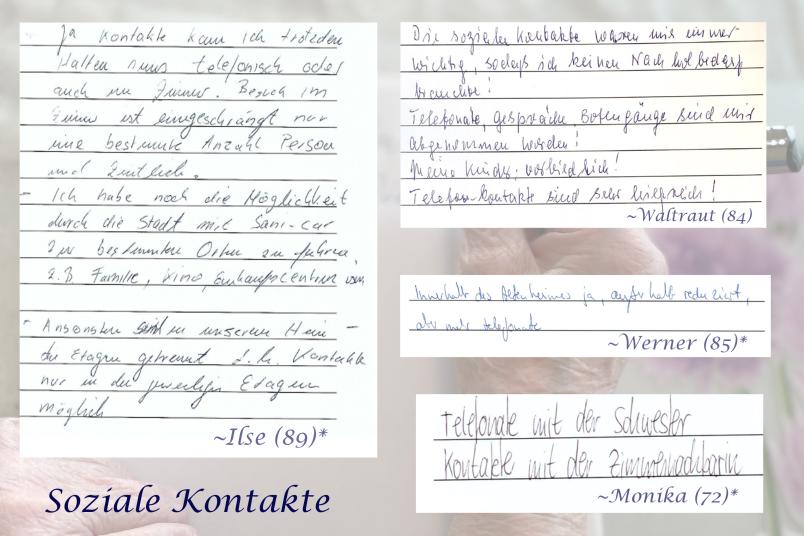 Ja Kontakte kann ich trotzdem
Halten nur telefonisch oder
auch im Zimmer. Besuch im
Zimmer ist eingeschrängt nur
eine bestimmte Anzahl Person
und Zeitlich.
- Ich habe noch die Möglichkeit
durch die Stadt mit Sani-car
zu bestimmten Orten zu fahren,
z.B Familie, Kino, Einkaufscentren usw.
- Ansonsten sind in unserem Heim -
die Etagen getrennt d.h. Kontakte
nur in der jeweiligen Etagen
möglich
~Ilse (89)*
Soziale Kontakte
Die soziale Kontakte waren mir immer
wichtig, sodass ich keinen Nachholbedarf
brauchte!
Telefonate, gespräche, Botengänge sind mir
abgenommen worden!
Meine Kinder: vorbildlich!
Telefon-Kontakte sind sehr hilfreich!
~Waltraut (84)
Innerhalb des Altenheimes ja, außerhalb reduziert,
aber mehr telefonate
~Werner (85)*
Telefonate mit der Schwester
Kontakte mit der Zimmernachbarin
~Monika (72)*